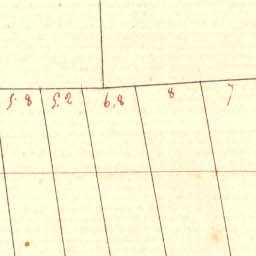 5.8 5.2 6,8 8 7